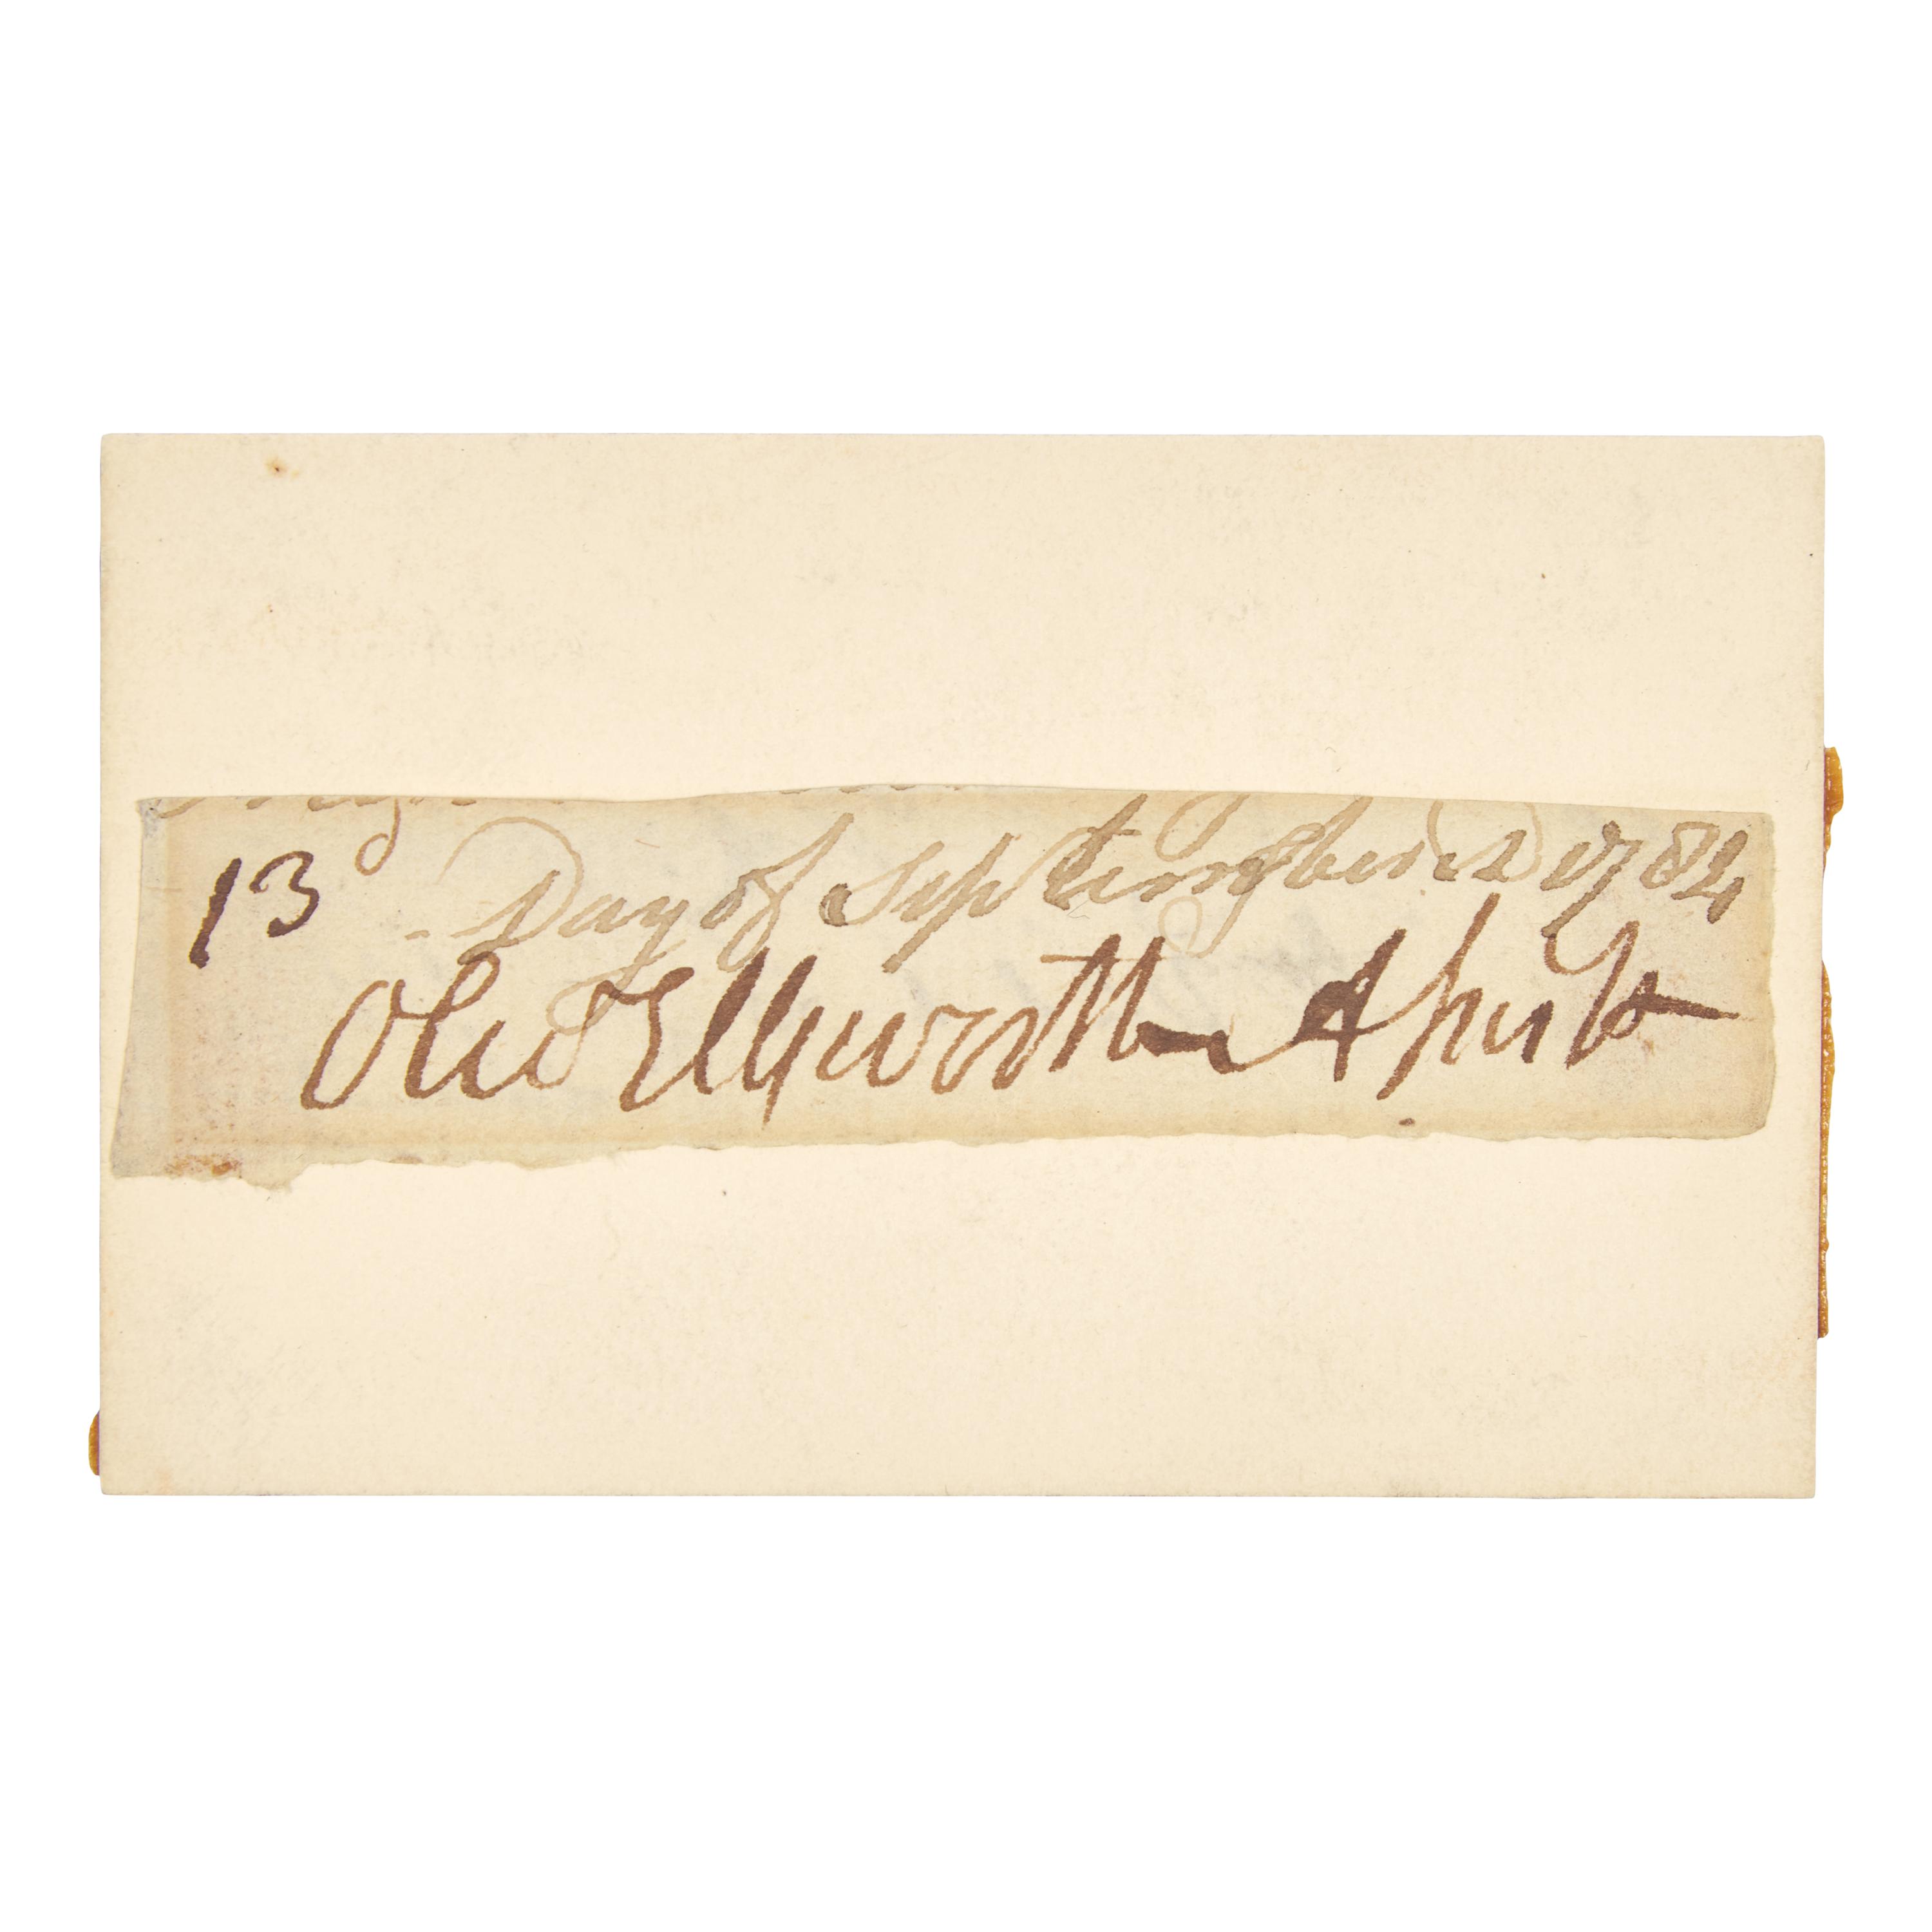 13 - Day of September AD 1784
Olivr Ellsworth Assist